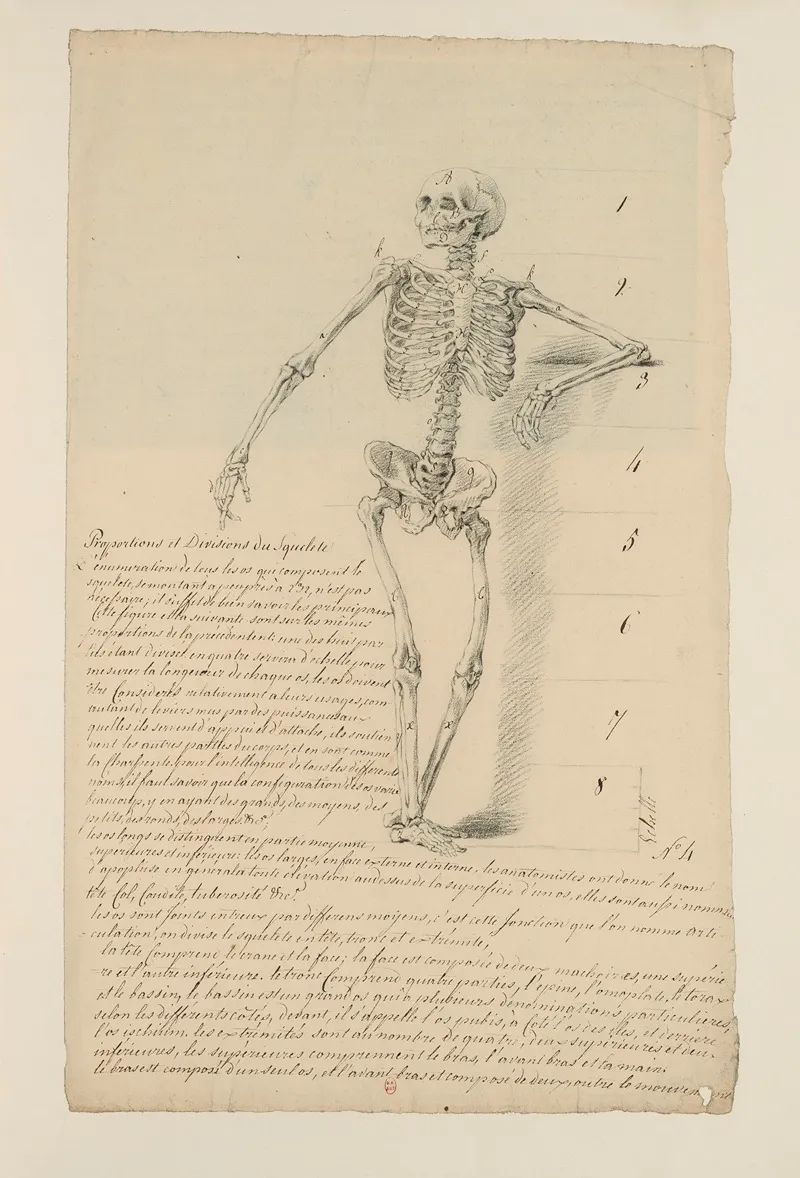 A
1
k
f
2
k
H
a
a
3
H
4
g
5
6
x
x
7
8
Echelle
N.º 4
Proportions et Divisions du Squelete
L'énumeration de tous les os qui composent le
squelete, se montant a peu près à 232, n'est pas
nécessaire; il suffit de bien savoir les principeaux
Cette figure et la suivante sont sur les mêmes
proportions de la précédente: une des huit par
ties étant divisée en quatre servira d'échelle pour
mesurer la longeueur de chaque os, les os doivent
être Considerés relativement a leurs usages, com
autant de leviers mus par des puissances aux
quelles ils servent d'appui et d'attache, ils soutien
nent les autres parties du corps, et en sont comme
la Charpente; pour l'intelligence de tous les differents
noms, il faut savoir que la configuration des os varie
beaucoup, y en ayant des grands, des moyens, des
petits, des ronds, des larges. &c.ª;
les os longs se distinguent en partie moyenne,
superieures et inférieure: les os larges, en face externe et interne, les anatomistes ont donné le nom
d'apophise en general a toute élévation au dessus de la superficie d'un os, elles sont aussi nommées
tête Col, Condile, tuberosité &c.ª
les os sont joints entreux par differens moÿens, c'est cette jonction que l'on nomme arti-
-culation, on divise le squelete en tête, tronc et extrémité,
la tête Comprend le crane et la face; la face est composée de deux machoires, une supérieu
-re et l'autre inférieure. le tronc Comprend quatre parties, l'épine, l'omoplate, le torax
et le bassin, le bassin est un grand os qui a plusieurs dénominations particulieres,
selon les différents côtés, devant, il s'appelle l'os pubis, à Côté l'os des iles, et derriere
l'os ischium. les extrémités sont au nombre de quatre, deux supérieures et deux
inférieures, les supérieures comprennent le bras, l'avant bras et la main.
le bras est composé d'un seul os, et l'avant bras est composé de deux, outre le